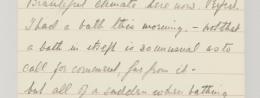 Beautiful climate here now. Perfect.
I had a bath this morning. - not that
a bath in itself is so unusual as to
call for comment, far from it -
but all of a sudden when bathing